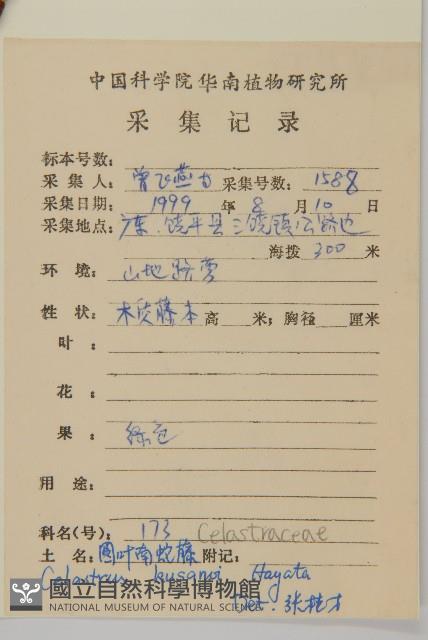 中国科学院华南植物研究所
采集记录
标本号数:
采集人: 曾飞燕 采集号数: 1588
采集日期: 1999 年 8 月 10 日
采集地点: 广东.饶平县三饶镇公路边
海拨 300 米
环境: 山地路旁
性状: 木质藤本 高 米; 胸径 厘米
叶:
花:
果: 绿色
用途:
科名(号): 173 Celastraceae
土名: 圆叶南蛇藤 附记:
Celastrus kusanoi Hayata
國立自然科學博物館
NATIONAL MUSEUM OF NATURAL SCIENCE
Det. 张桂才